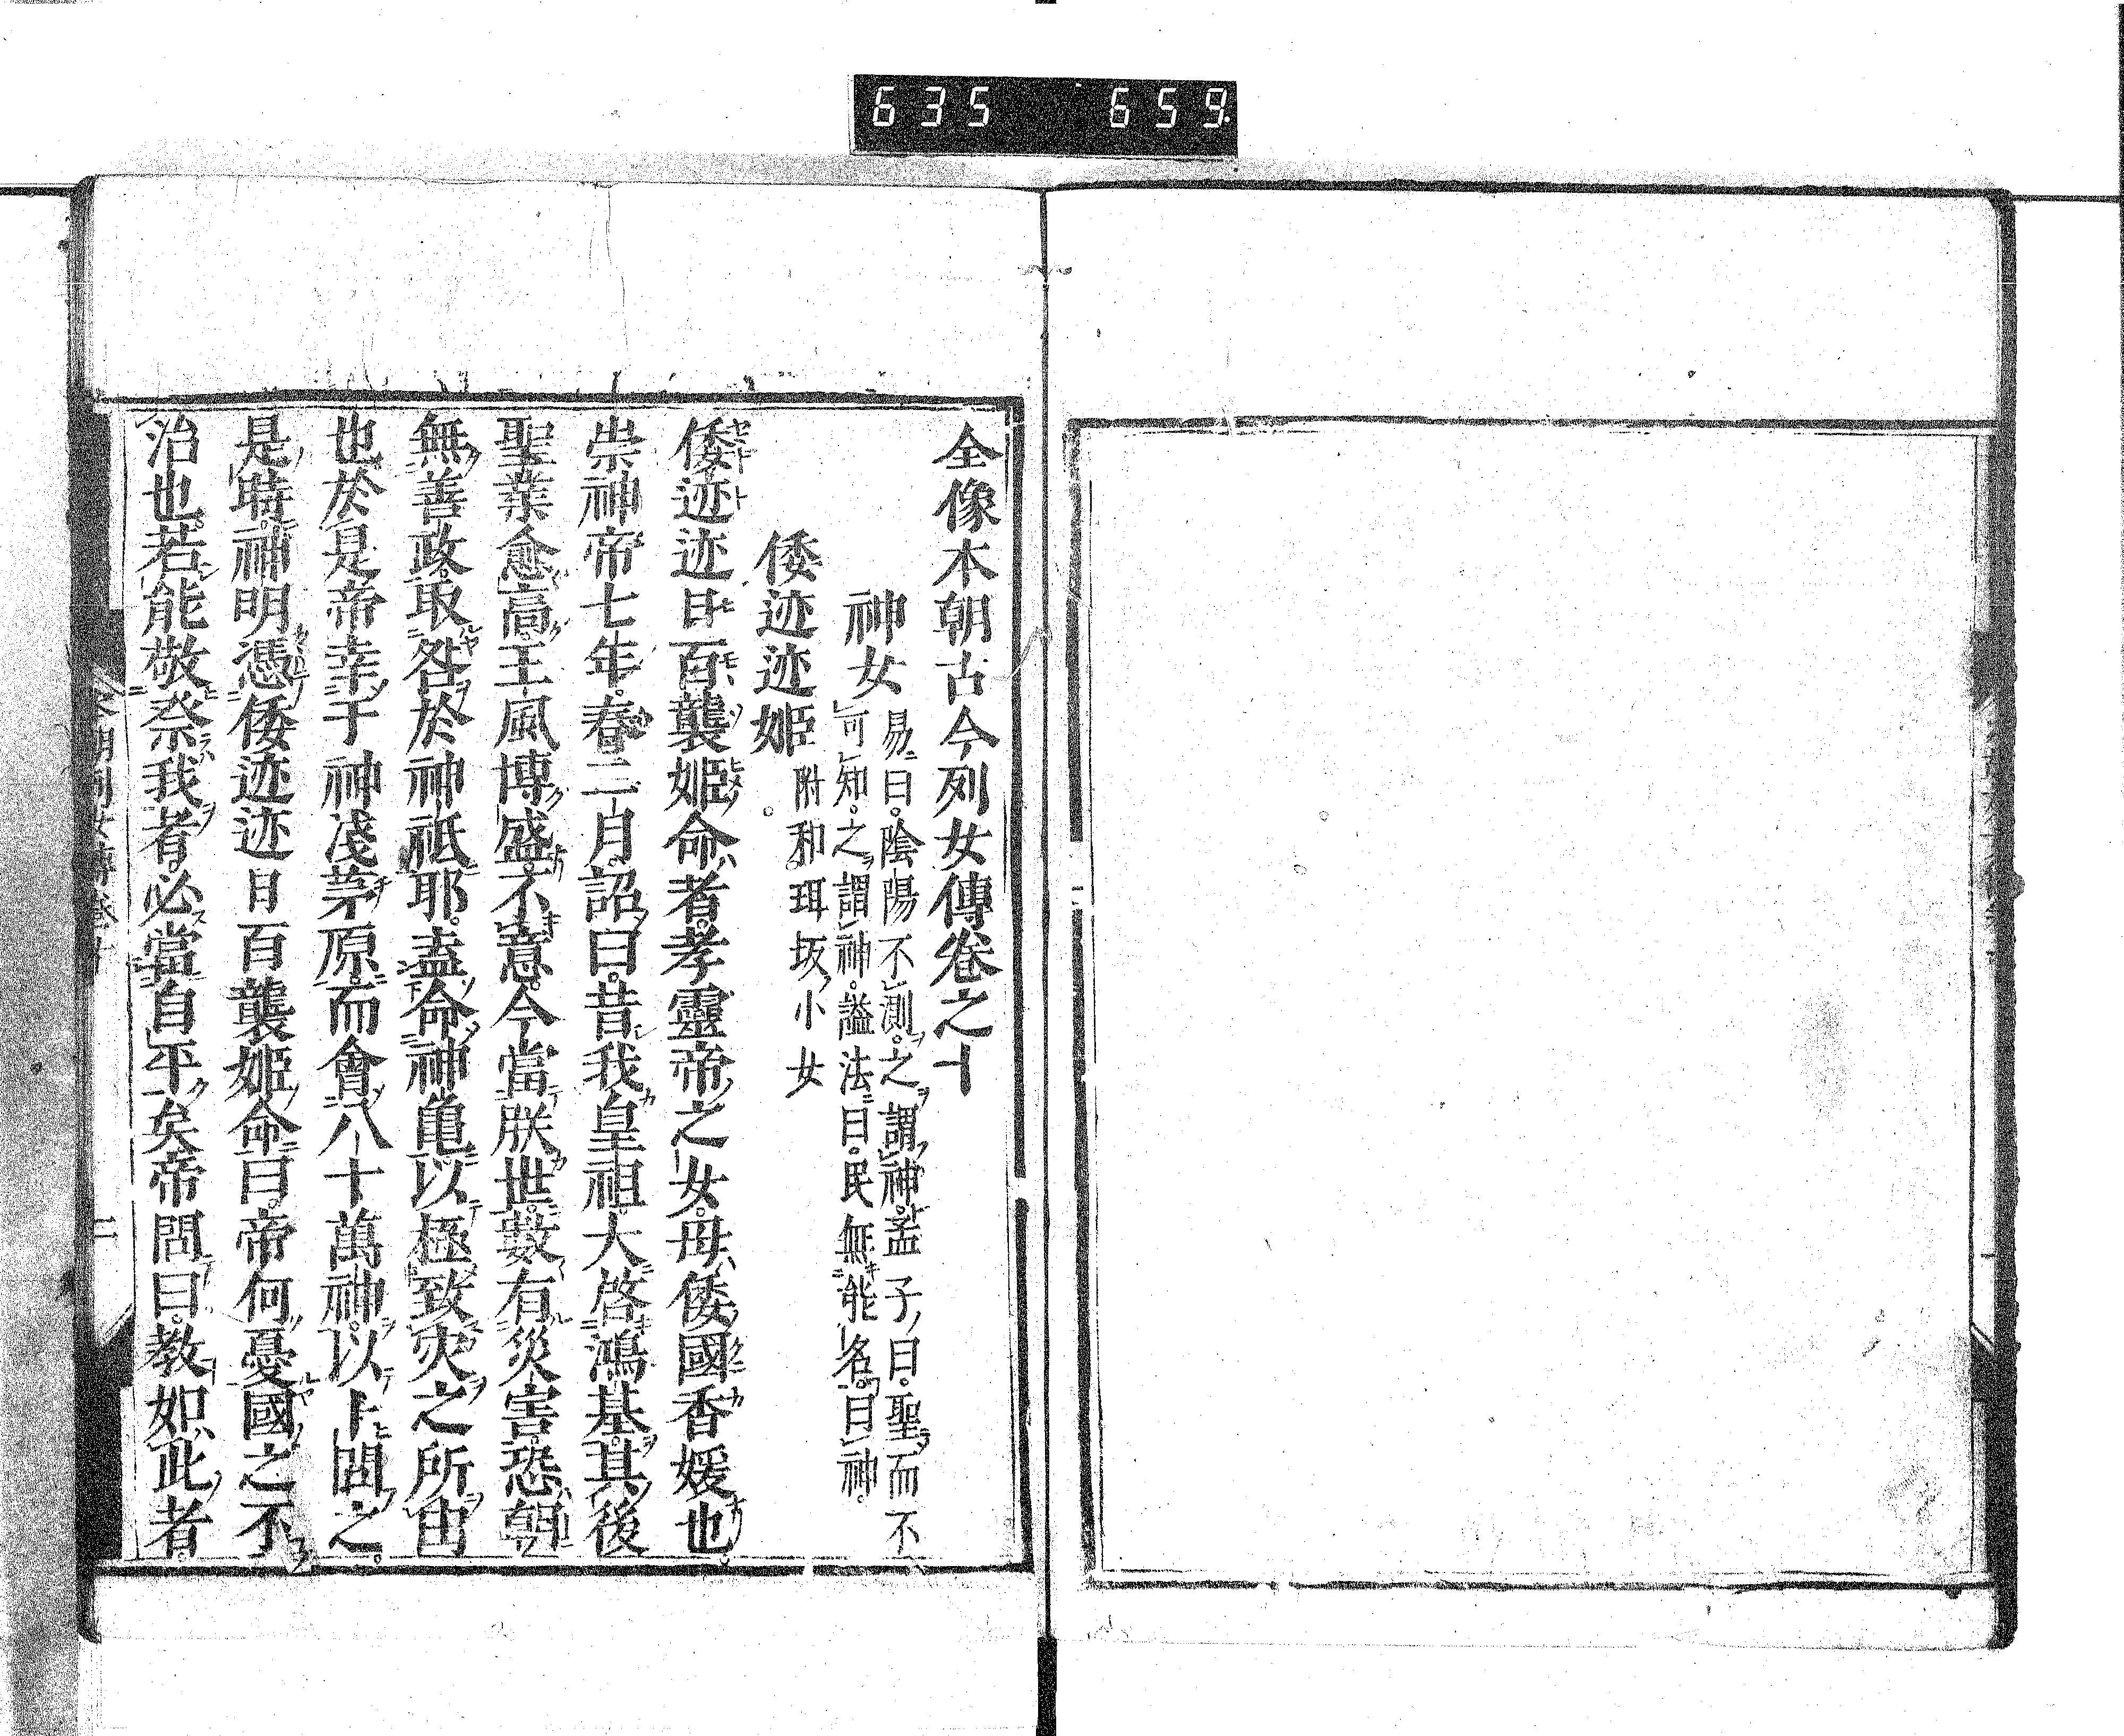 635 659
全像本朝古今列女傳卷之十
神女
易曰。陰陽不測。之謂神。孟子曰。聖而不
可知。之謂神。謚法曰。民無能名。曰神。
倭迹迹姬。附和珥坂小女
倭迹迹日百襲姬命者。孝靈帝之女。母倭國香媛也。
崇神帝七年。春二月。詔曰。昔我皇祖。大啓鴻基。其後
聖業愈高。王風博盛。不意。今當朕世。數有災害。恐朝
無善政。取咎於神祇耶。盍命神亀以極致灾之所由
也於是帝幸于神淺茅原。而會八十萬神。以卜問之。
是時神明憑倭迹迹日百襲姬命曰。帝何憂國之不
治也。若能敬祭我者。必當自平矣帝問曰。教如此者。
二